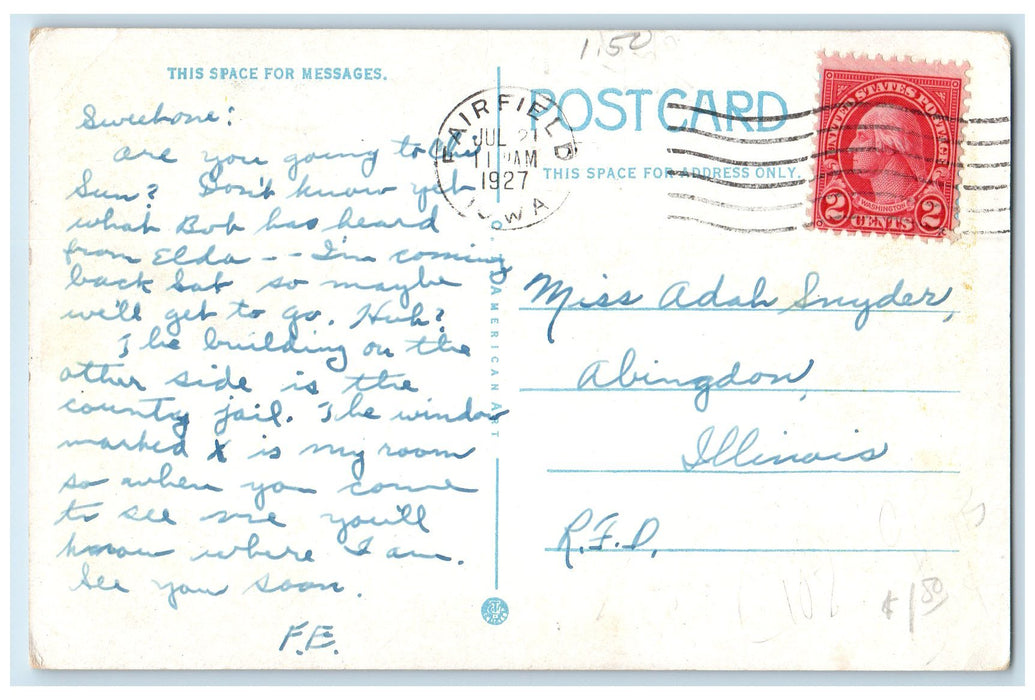 THIS SPACE FOR MESSAGES.
Sweetone:
Are you going to the
Sun? Don't know yet
what Bob has heard
from Elda -- I'm coming
back Sat so maybe
we'll get to go. Huh?
The building on the
other side is the
county jail. The window
marked X is my room
so when you come
to see me you'll
know where I am.
See you soon.
F.E.
AMERICAN ART
1.50
POST CARD
THIS SPACE FOR ADDRESS ONLY.
FAIRFIELD
JUL 21
11 AM
1927
IOWA
UNITED STATES POSTAGE
WASHINGTON
2 CENTS 2
Miss Adah Snyder,
Abingdon,
Illinois
R.F.D.
$1.50